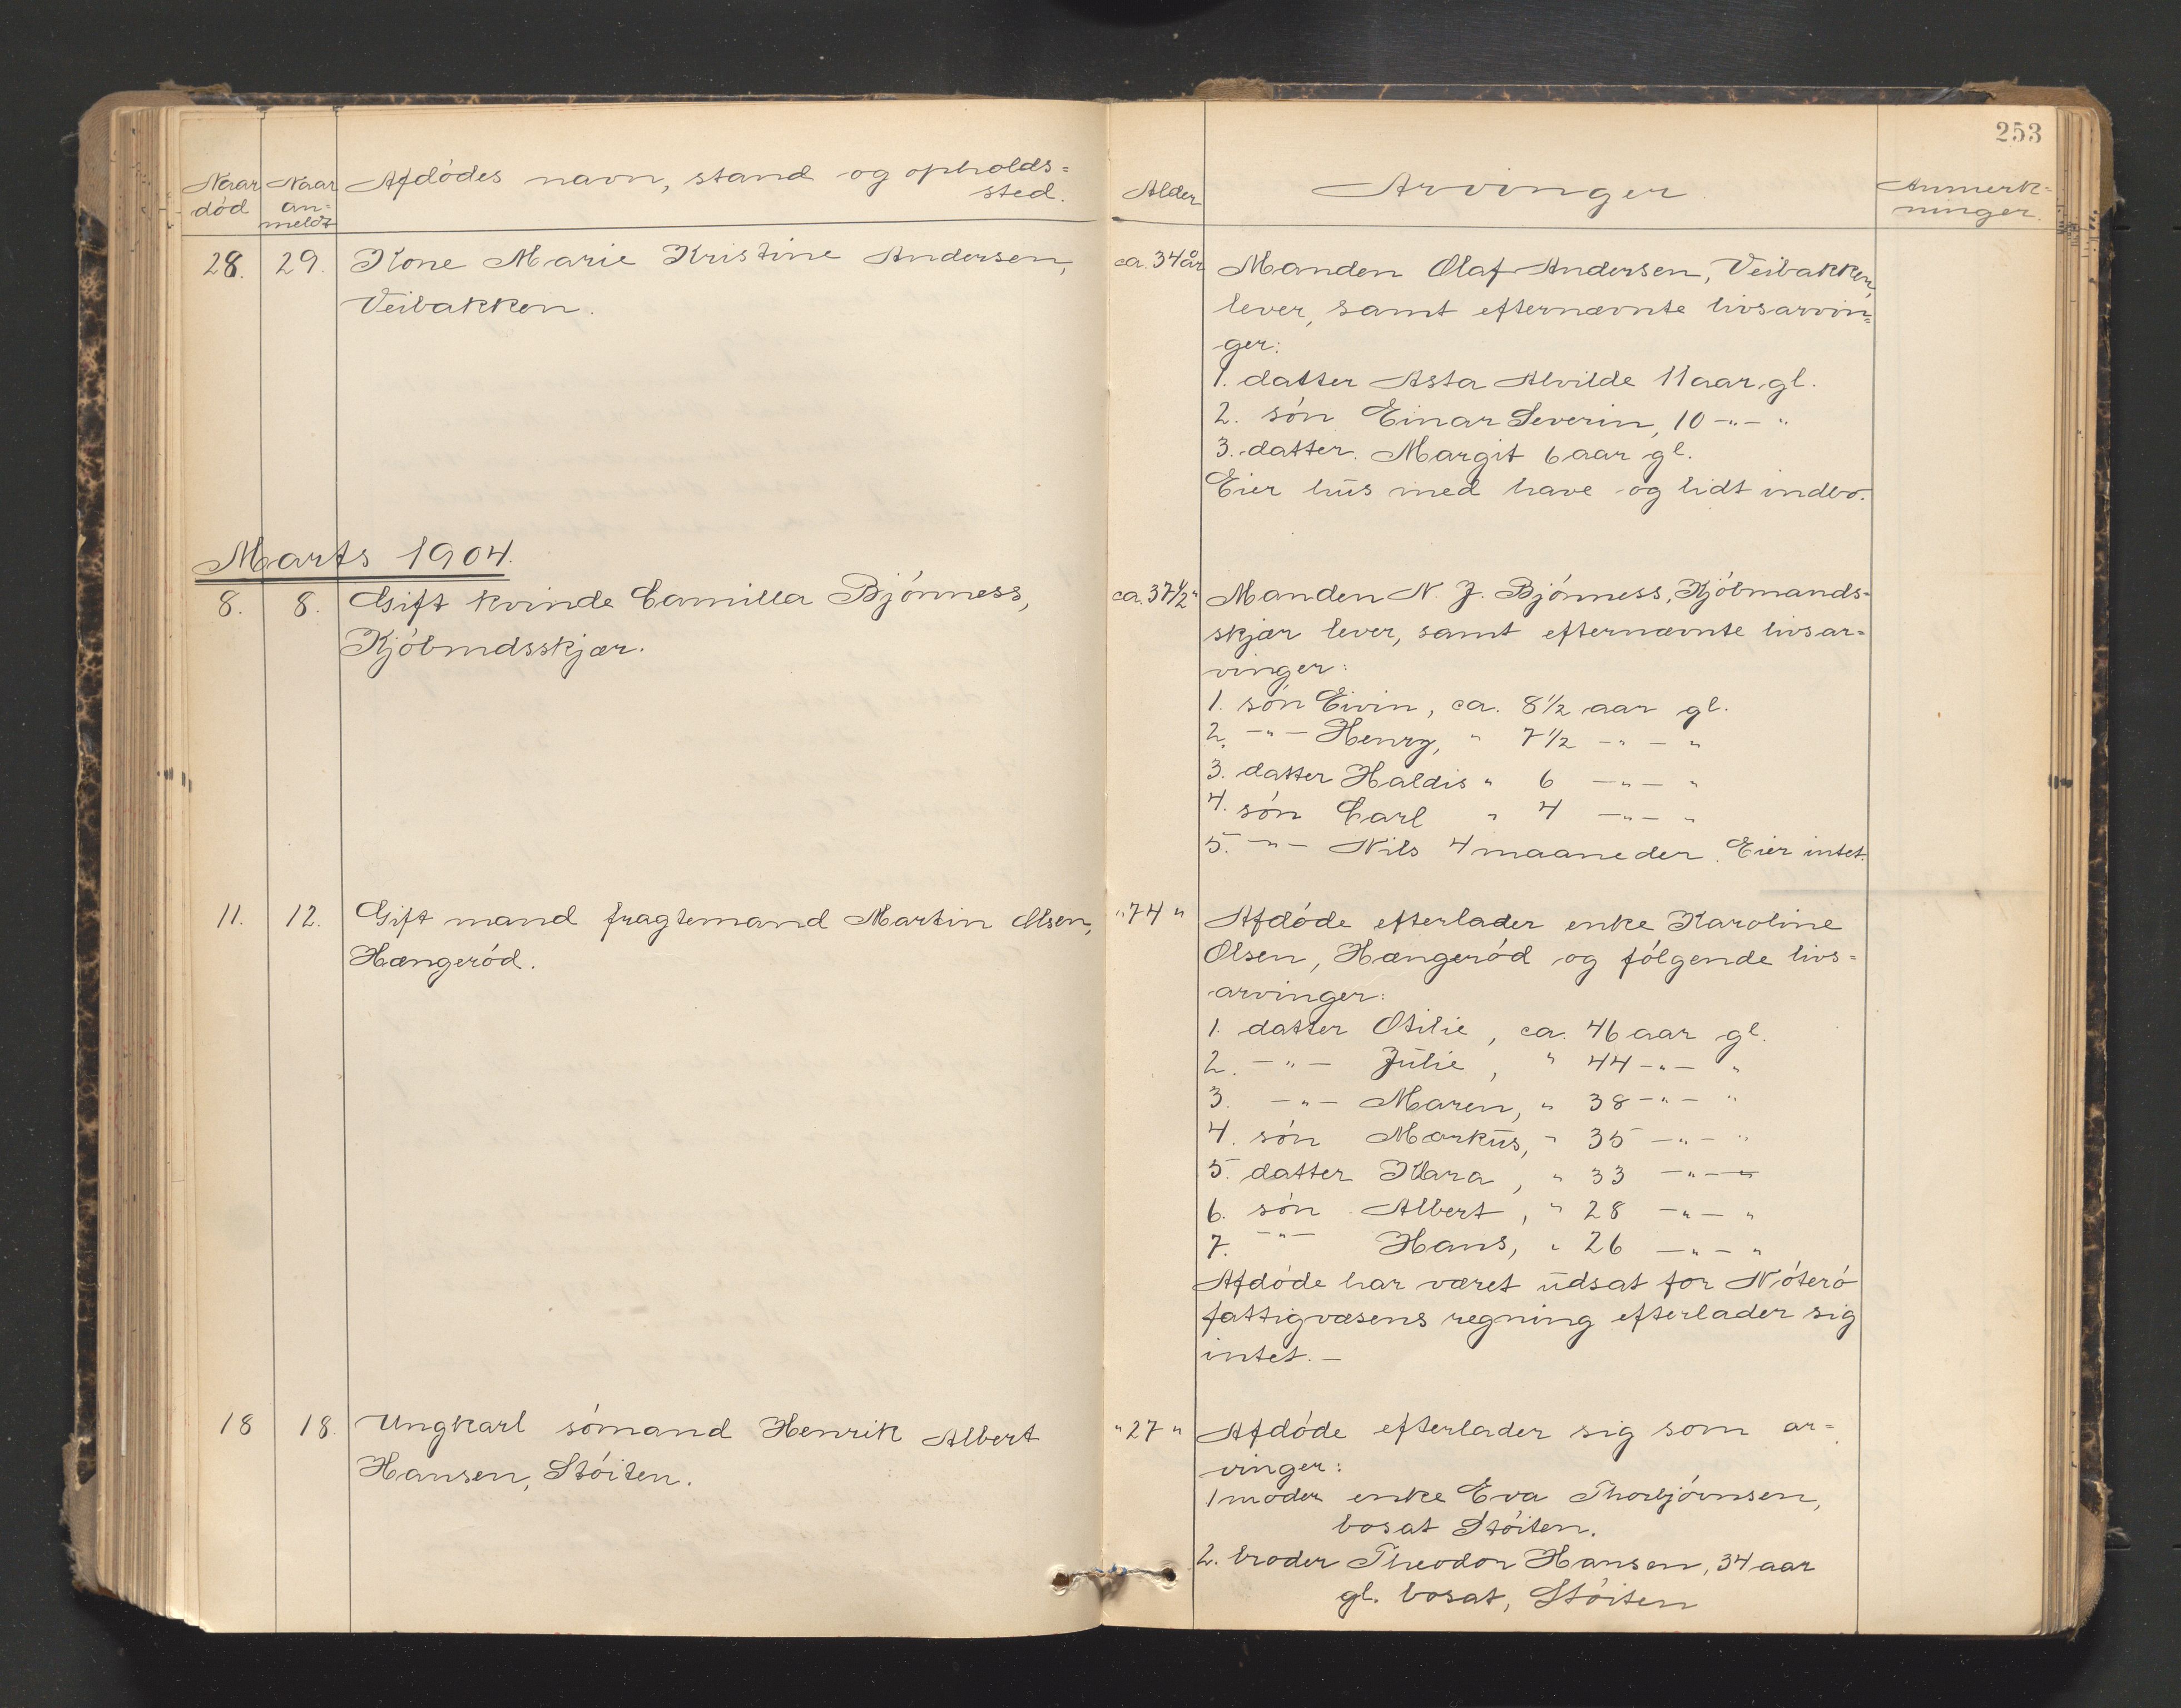 253
Naar død
Naar an=
meldt
Afdødes navn, stand og opholds=
sted.
Alder
Arvinger.
Anmerk=
ninger.
28. 29. Kone Marie Kristine Andersen,
Veibakken.
ca. 34 år
Manden Olaf Andersen, Veibakken,
lever, samt efternævnte livsarvin=
ger:
1. datter Asta Alvilde 11 aar gl.
2. søn Einar Severin, 10 -"- "
3. datter. Margit 6 aar gl.
Eier hus med have og lidt indbo.
Marts 1904.
8. 8. Gift kvinde Camilla Bjønness,
Kjöbmdsskjær.
ca. 37 1/2 "
Manden N. J. Bjønness, Kjöbmands=
skjær lever, samt efternævnte livsar=
vinger:
1. søn Eivin, ca. 8 1/2 aar gl.
2. -"- Henry, " 7 1/2 -"- "
3. datter Haldis " 6 -"- "
4. søn Carl " 4 -"- "
5. -"- Nils 4 maaneder. Eier intet.
11. 12. Gift mand fragtemand Martin Olsen,
Hængerød.
" 74 "
Afdøde efterlader enke Karoline
Olsen, Hængerød og følgende livs=
arvinger:
1. datter Otilie, ca. 46 aar gl.
2. -"- Julie, " 44 -"- "
3. -"- Maren, " 38 -"- "
4. søn Markus, " 35 -"- "
5. datter Klara, " 33 -"- "
6. søn Albert, " 28 -"- "
7. -"- Hans, " 26 -"- "
Afdøde har været udsat for Nøterø
fattigvæsens regning efterlader sig
intet. —
18 18. Ungkarl sømand Henrik Albert
Hansen, Støiten.
" 27 "
Afdøde efterlader sig som ar=
vinger:
1 moder enke Eva Thorbjørnsen,
bosat Støiten.
2. broder Theodor Hansen, 34 aar
gl. bosat, Støiten